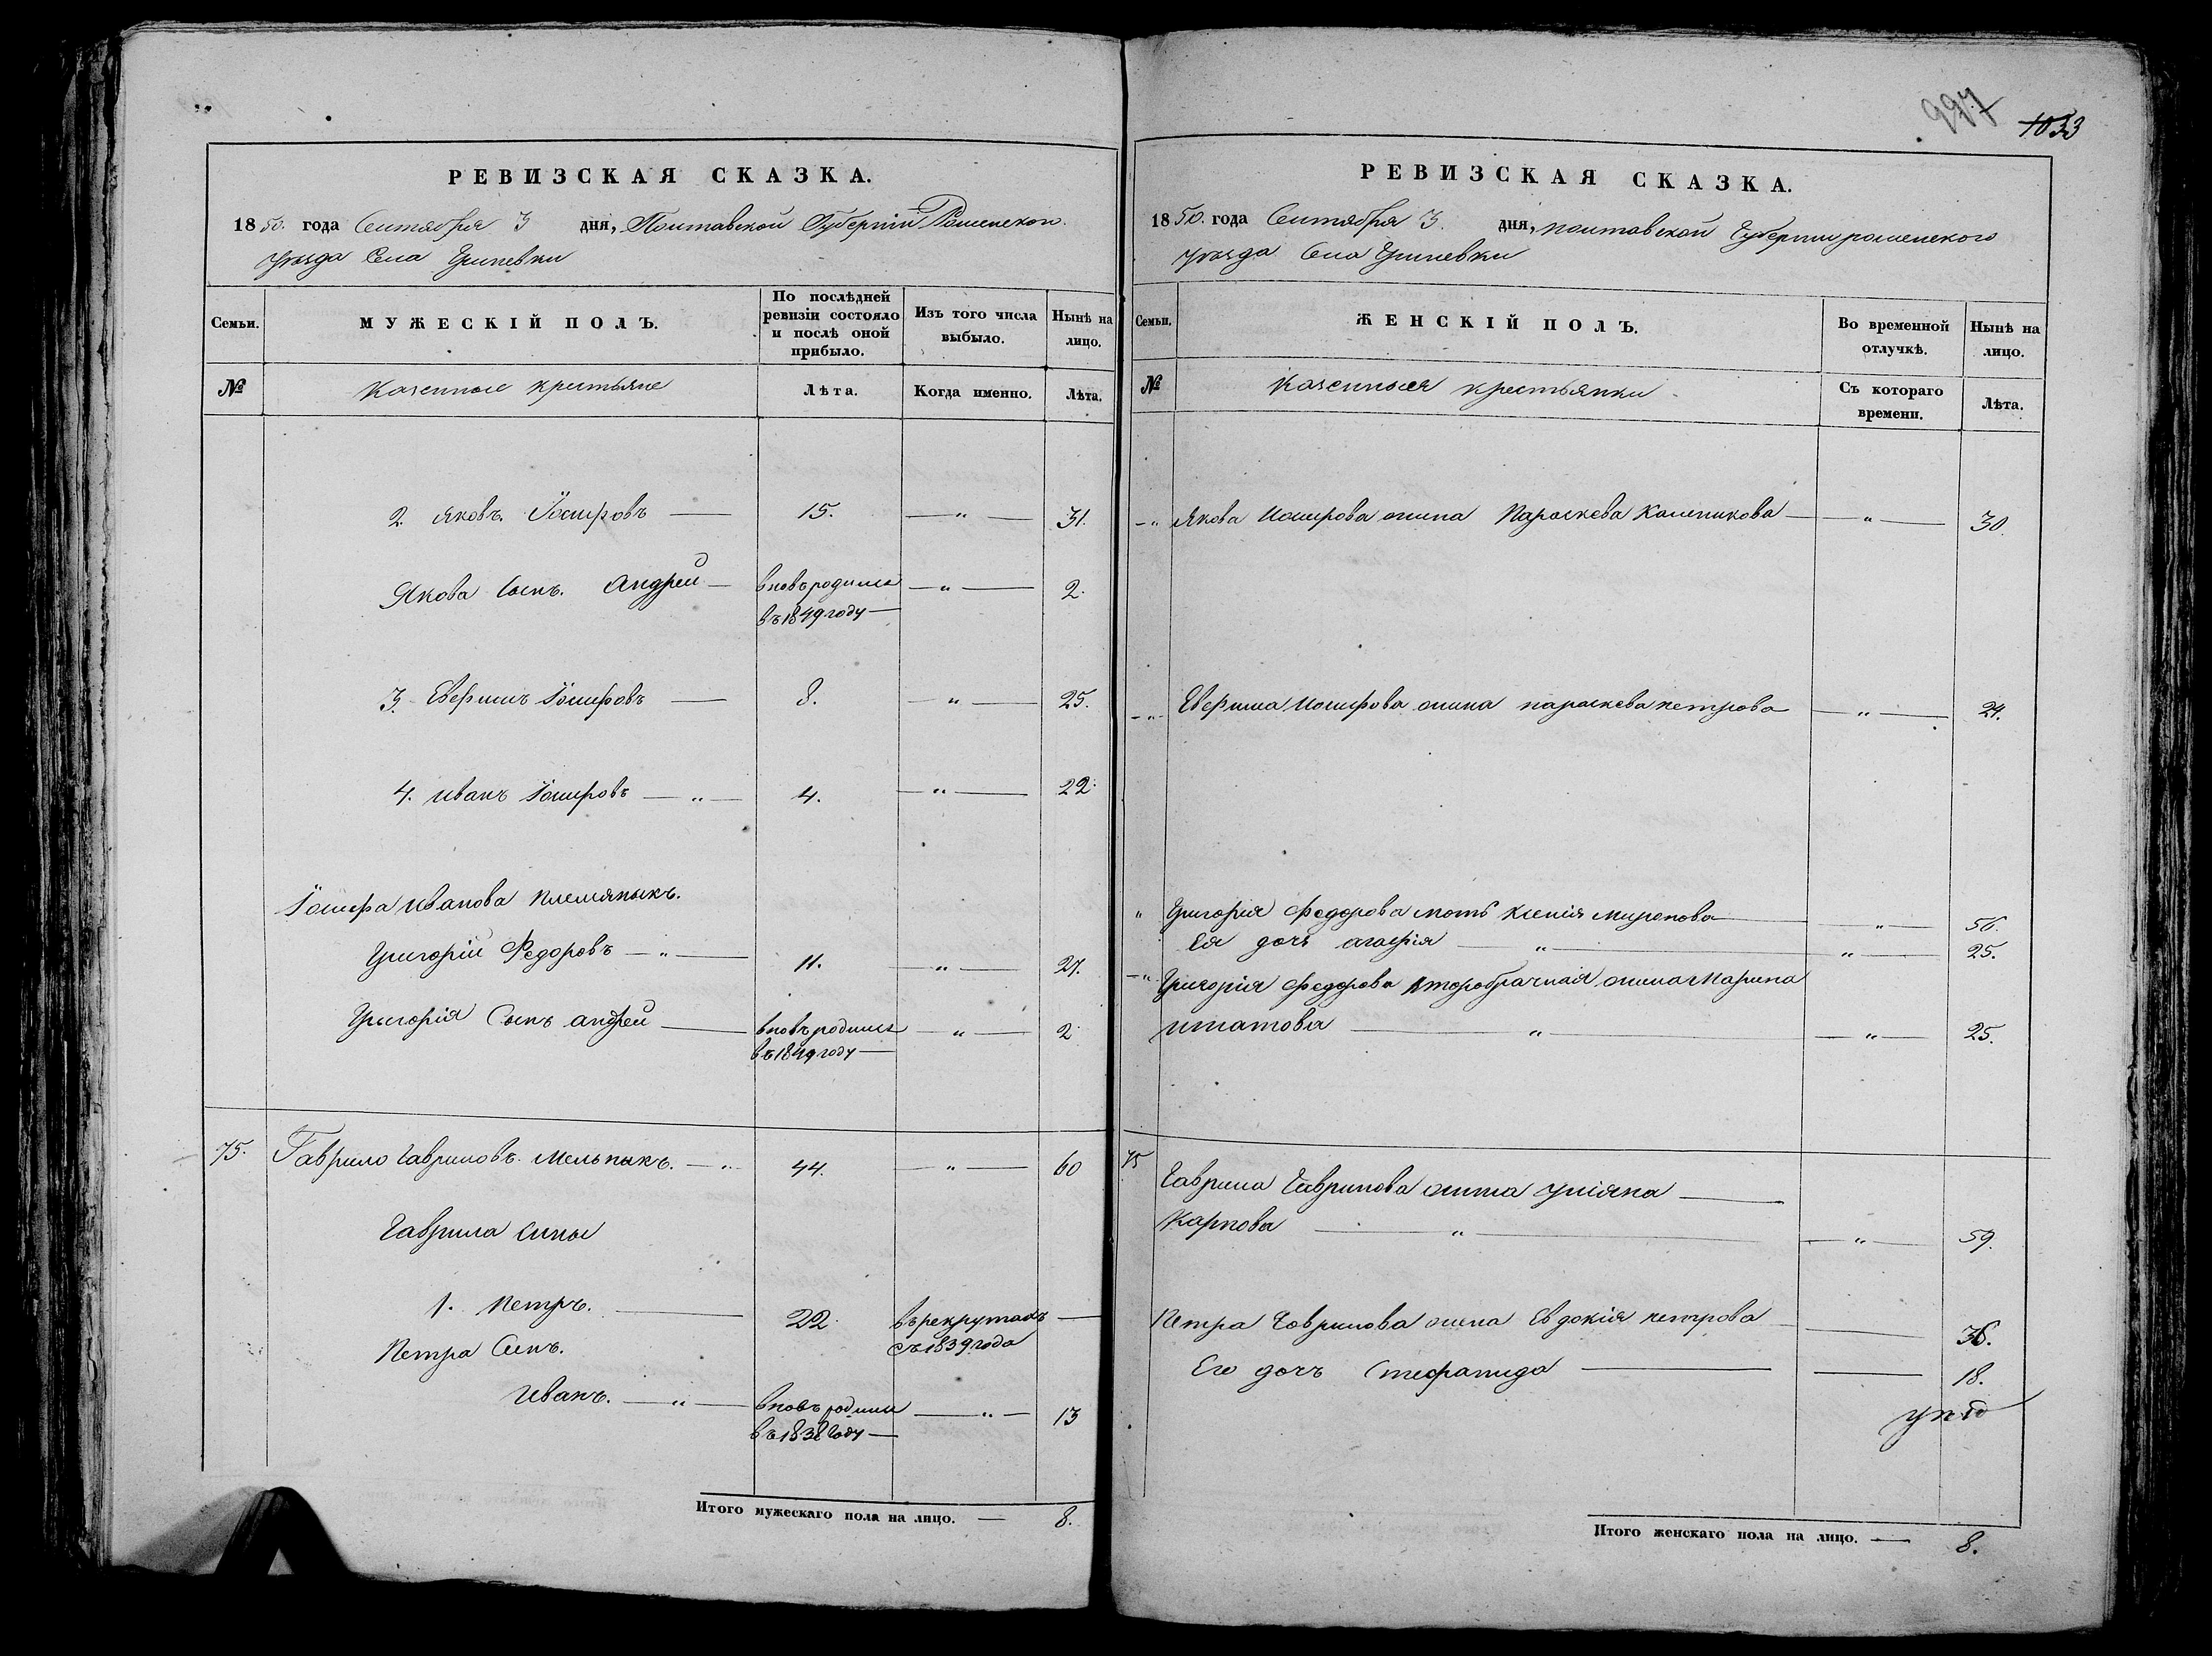 РЕВИЗСКАЯ СКАЗКА.
1850. года Сентября 3 дня, Полтавской Губернии Роменскон
уезда Села Гриневки
Семьи.
МУЖЕСКІЙ ПОЛЪ.
По послѣдней
ревизіи состояло
и послѣ оной
прибыло.
Изъ того числа
выбыло.
Нынѣ на
лицо.
№
Казенные крестьяне
Лѣта.
Когда именно.
Лѣта.
2. Яковъ Іосифовъ — 15. — " — 31.
Якова Сынъ. Андрей — вновь родился — " — 2.
въ 1849 году —
3. Евфимъ Іосифовъ — 8. — " — 25.
4. иванъ Іосифовъ — " — 4. — " — 22.
Іосифа иванова племяныкъ.
Григорій Федоровъ — " — 11. — " — 27.
Григорія Сынъ андрей — вновь родился — " — 2
въ 1849 году —
75. Гаврило Гавриловъ Мельныкъ. — " 44. — " — 60
Гаврила сины
1. Петръ. — 22. въ рекрутахъ —
съ 1839 года
Петра Синъ.
Иванъ. — " — вновь родился — " — 13
въ 1838 году —
Итого мужескаго пола на лицо. — 8.
997 1033
РЕВИЗСКАЯ СКАЗКА.
1850. года Сентября 3. дня, полтавской Губернии роменского
уезда Села Гриневки
Семьи.
ЖЕНСКІЙ ПОЛЪ.
Во временной
отлучкѣ.
Нынѣ на
лицо.
№
Казенныея крестьянки
Съ котораго
времени.
Лѣта.
— " Якова Иосифова жина Параскева Калепикова — " — 30.
— " Евфима Иосифова жина параскева петрова — " — 24.
" Григорія Федорова мать Ксенія миронова — " — 56.
Ея дочь агафія — " — " — 25.
— " Григорія Федорова второбрачная жина Марина
игнатова — " — " — 25.
75 Гаврила Гаврилова жина уліяна —
Карпова — " — " — 59.
Петра Гаврилова жина Евдокія петрова — 36.
Его дочь Стефанида — 18.
Итого женскаго пола на лицо. — 8.